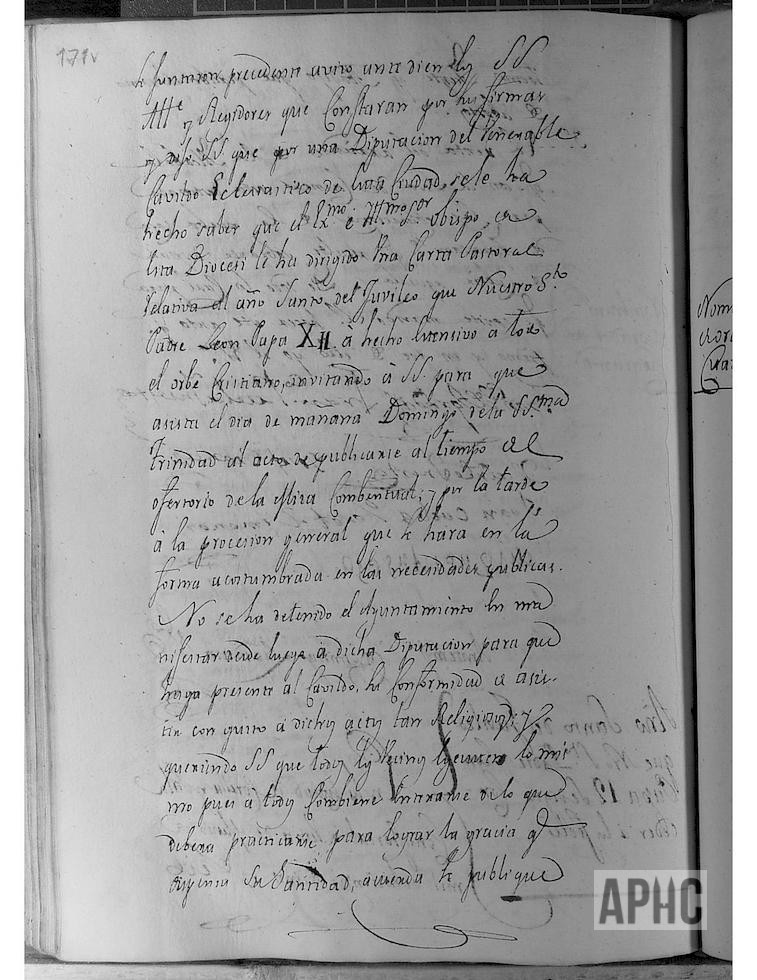 171v
se juntaron precedente aviso ante diem los SS
Alle y Regidores que Constaran por sus firmas
y dijo SS que por una Diputacion del Venerable
Cavildo Eclesiastico de esta Ciudad, se le ha
hecho saber que el Exmo. e Ill.mo Sor. Obispo de
esta Diocesi le ha dirigido una Carta Pastoral
relativa al año Santo del Juvileo que Nuestro Sto
Padre Leon Papa XII. á hecho Extensivo a todo
el orbe Cristiano, invitando á SS. para que
asista el dia de mañana Domingo dela SSma
Trinidad al acto de publicarse al tiempo del
ofertorio de la Misa Combentual, y por la tarde
á la procesion general que se hara en la
forma acostumbrada en las necesidades publicas.
No se ha detenido el Ayuntamiento en ma
nifestar desde luego á dicha Diputacion para que
haga presente al Cavildo, su Conformidad de asis-
tir con gusto á dichos actos tan Religiosos; y
queriendo SS que todos los Vecinos egecuten lo mis
mo pues á todos Combiene enterarse de lo que
deberan practicarse para lograr la gracia q.
dispensa Su Santidad, acuerda se publique
Nom
Cua
APHC